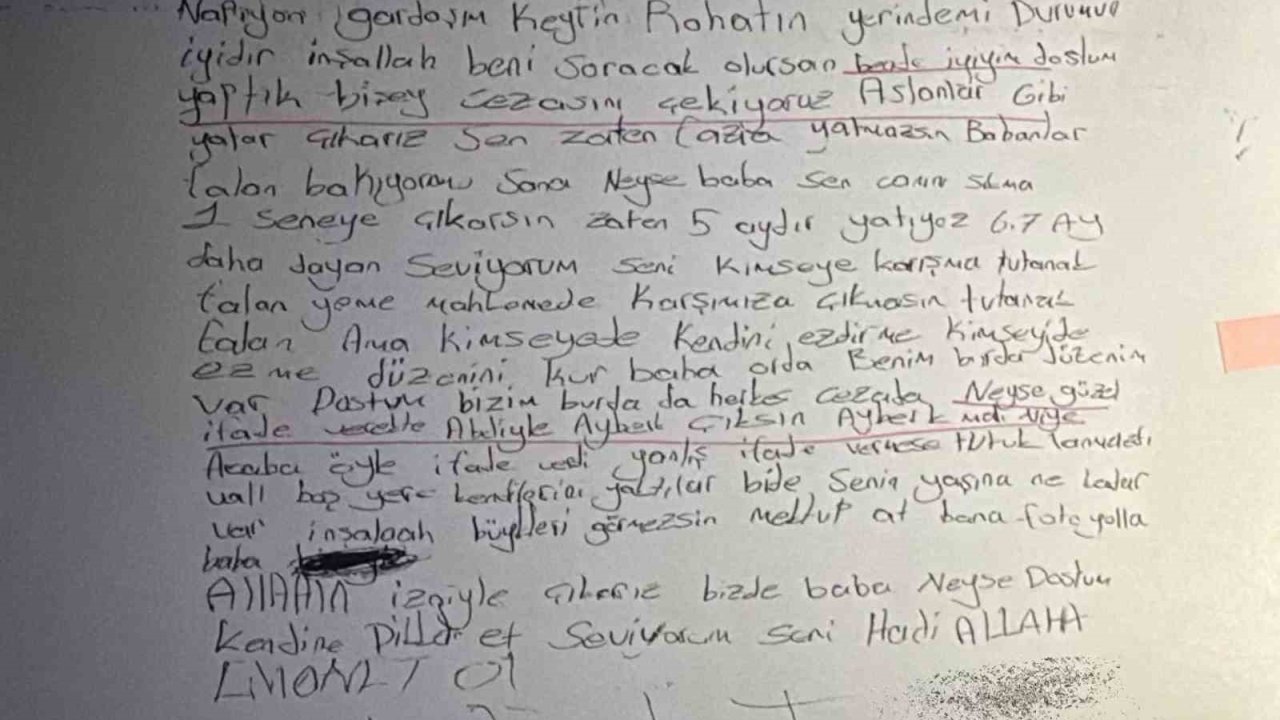 Napıyon gardaşım Keyfin Rohatın yerindemi Durumun
iyidir inşallah beni soracak olursan bende iyiyim dostum
yaptık bizey cezasını çekiyoruz Aslanlar Gibi
yatar çıkarız Sen zaten fazla yatmazsın Babanlar
falan bakıyorum sana Neyse baba sen canın sıkma
1 seneye çıkarsın zaten 5 aydır yatıyoz 6.7 AY
daha dayan Seviyorum seni Kimseye karışma tutanak
falan yeme mahkemede Karşımıza çıkmasın tutanak
falan Ama kimseyede kendini ezdirme kimseyide
ezme düzenini kur baba orda Benim burda düzenim
var Dostum bizim burda da herkes cezada Neyse güzel
ifade Abiliyle Ayberk çıksın Ayberk niye
Acaba öyle ifade verdi yanlış ifade vermese tutuk
vall boş yere yattılar bide Senin yaşına ne kadar
var inşalaah büyükleri görmezsin mektup at bana foto yolla
baba
AllAHIN izniyle çıkarız bizde baba Neyse Dostum
Kendine Dikkat et Seviyorum seni Hadi ALLAHA
EMANET Ol